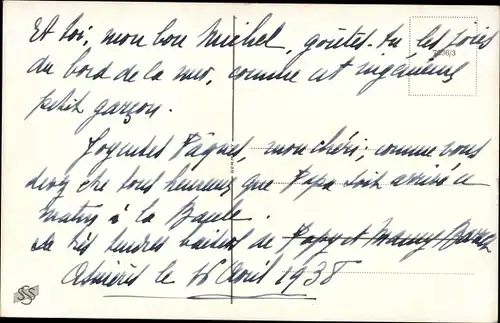 Et toi, mon bon Michel, goûtes-tu les joies
7398/3
du bord de la mer, comme cet ingénieux
petit garçon.
Joyeuses Pâques, mon chéri, comme vous
devez être tous heureux que Papa soit arrivé ce
matin à la Baule.
de très tendres baisers de Papy et Mamy
Asnières le 16 Avril 1938
SSS